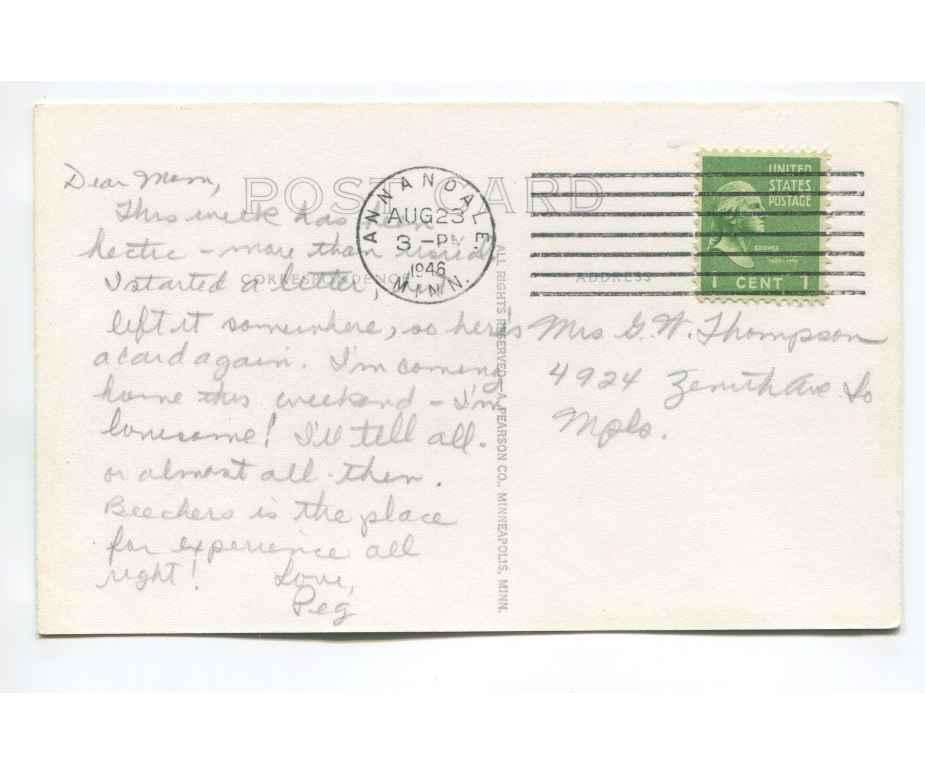 POST CARD
CORRESPONDENCE
ADDRESS
Dear Mom,
This week has been
hectic - more than usual.
I started a letter,
left it somewhere, so here's
a card again. I'm coming
home this weekend - I'm
lonesome! I'll tell all.
or almost all - then.
Beechers is the place
for experience all
right! Love,
Peg
ANNANDALE.
AUG 23
3 - PM
1946
MINN.
UNITED
STATES
POSTAGE
1 CENT 1
Mrs G. W. Thompson
4924 Zenith Ave So
Mpls.
ALL RIGHTS RESERVED—A. PEARSON CO., MINNEAPOLIS, MINN.